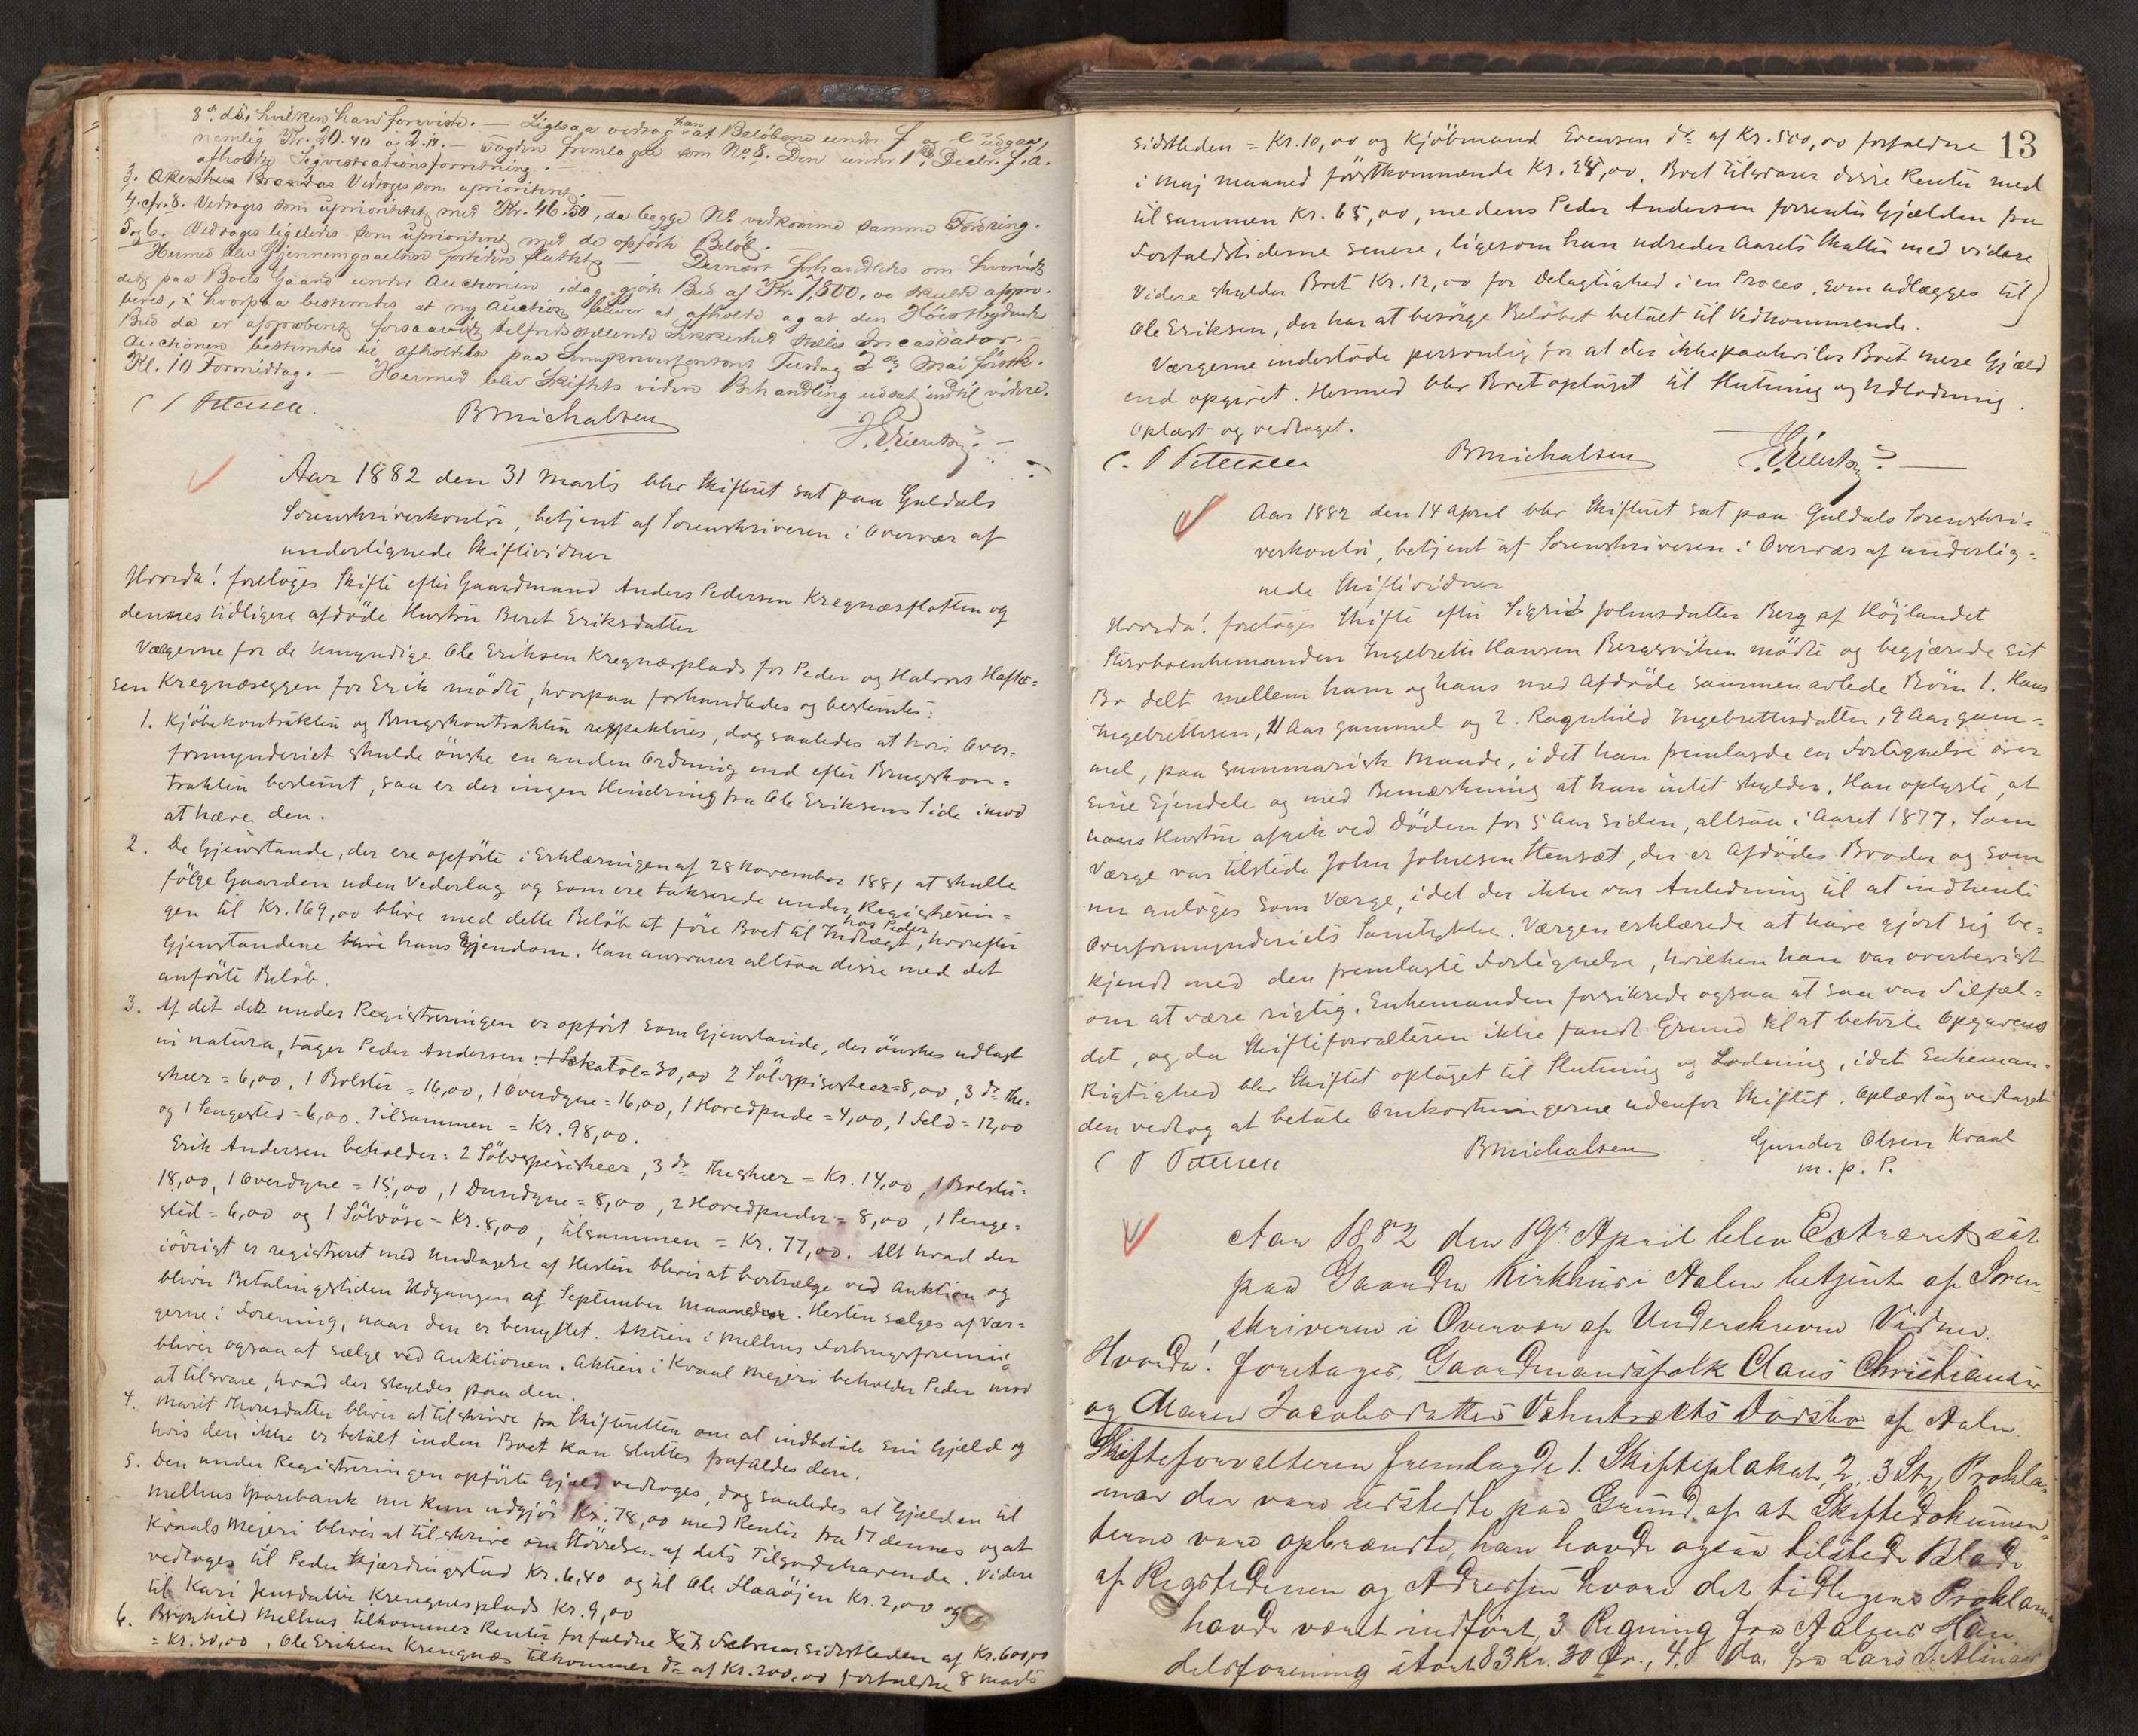 8de dü, hvilken han foreviste. — Ligesaa vedtog han at Beløbene under f og e udgaar,
nemlig Kr. 20.40 og 2.14. — Fogden fremlagde som No 8. Den under 1ste Decbr. f. A.
afholdte Seqvestrationsforretning. —
3. Akershus Brandas Vedtoges som uprioriteret. —
4. cfr. 8. Vedtoges som uprioriteret med Kr. 46.50, da begge No vedkomme samme Fordring.
5 og 6. Vedtoges ligeledes som uprioriteret med de opførte Beløb. —
Hermed blev Gjennemgaaelsen fortiden sluttet — Dernæst forhandledes om hvorvidt
det paa Boets Gaard under Auctionen idag gjorte Bud af Kr. 7,800.00 skulde appro-
beres, hvorpaa bestemtes at ny Auction bliver at afholde og at den Høistbydendes
Bud da er approberet forsaavidt tilfredsstillende Sikkerhed stilles Incassator. —
Auctionen bestemtes til Afholdelse paa Sorenskriverkontoret Tirsdag 2den Mai førstk.
Kl. 10 Formiddag. — Hermed blev Skiftets videre Behandling udsat indtil videre.
C T Petersen. BMichalsen
Aar 1882 den 31 Marts blev Skifteret sat paa Guldals
Sorenskriverkontor, betjent af Sorenskriveren i Overvær af
undertegnede Skiftevidner
Hvorda! foretoges Skifte efter Gaardmand Anders Pedersen Kregnæsflatten og
dennes tidligere afdøde Hustru Beret Eriksdatter
Værgerne for de Umyndige Ole Eriksen Kregnæsplads for Peder og Halvor Haftor-
sen Kregnæseggen for Erik mødte, hvorpaa forhandledes og bestemtes:
1. Kjöbekontrakten og Brugskontrakten respekteres, dog saaledes at hvis Over-
formynderiet skulde önske en anden Ordning end efter Brugskon-
trakten bestemt, saa er der ingen Hindring fra Ole Eriksens Side imod
at hæve den.
2. De Gjenstande, der ere opförte i Erklæringen af 28 November 1881 at skulle
fölge Gaarden uden Vederlag og som ere takserede under Registrerin-
gen til Kr. 169,00 blive med dette Belöb at före Boet til Indtægt hos Peder, hvorefter
Gjenstandene blive hans Ejendom. Han ansvarer altsaa disse med det
anförte Belöb.
3. Af det der under Registreringen er opfört som Gjenstande, der önskes udlagt
in natura, tager Peder Andersen: 1 Skatol = 30,00 2 Sölvspiseskeer = 8,00, 3 do The-
skeer = 6,00, 1 Bolster = 16,00, 1 Overdyne = 16,00, 1 Hovedpude = 4,00, 1 Feld = 12,00
og 1 Sengested = 6,00. Tilsammen = Kr. 98,00.
Erik Andersen beholder: 2 Sölvspiseskeer, 3 do Theskeer = Kr. 14,00, 1 Bolster =
18,00, 1 Overdyne = 15,00, 1 Dundyne = 8,00, 2 Hovedpuder = 8,00, 1 Senge-
sted = 6,00 og 1 Sölvöse = Kr. 8,00, tilsammen = Kr. 77,00. Alt hvad der
iövrigt er registreret med Undtagelse af Hesten bliver at bortsælge ved Auktion og
bliver Betalingstiden Udgangen af September Maaned. Hesten sælges af Vær-
gerne i Forening, naar den er benyttet. Aktien i Melhus Forbrugsforening
bliver ogsaa at sælge ved Auktionen. Aktien i Kvaal Mejeri beholder Peder mod
at tilsvare, hvad der skyldes paa den.
4. Marit Thoresdatter bliver at tilskrive fra Skifteretten om at indbetale sin Gjæld og
hvis den ikke er betalt inden Boet kan sluttes frafaldes den.
5. Den under Registreringen opförte Gjæld vedtoges, dog saaledes at Gjælden til
Melhus Sparebank nu kun udgjör Kr. 78,00 med Renter fra 17 dennes og at
Kvaals Mejeri bliver at tilskrive om Störrelsen af dets Tilgodehavende. Videre
vedtoges til Peder Kjærdingstad Kr. 6,40 og til Ole Haaöjen Kr. 2,00 og
til Kari Jensdatter Krengnesplads Kr. 9,00
6. Brynhild Melhus tilkommer Renter forfaldne Februar sidstleden af Kr. 600,00
= Kr. 30,00, Ole Eriksen Krengnæs tilkommer do af Kr. 200,00 forfaldne 8 Marts
13
sidstleden = Kr. 10,00 og Kjöbmand Evensen do af Kr. 500,00 forfaldne
i Maj Maaned förstkommende Kr. 25,00. Boet tilsvarer disse Renter med
tilsammen Kr. 65,00, medens Peder Andersen forrenter Gjælden fra
Forfaldstiderne senere, ligesom han udreder Aarets Skatter med videre
Videre skylder Boet Kr. 12,00 for Delagtighed i en Proces, som udlægges til
Ole Eriksen, der har at besörge Belöbet betalt til Vedkommende.
Værgerne indestode personlig for at der ikke paahviler Boet mere Gjæld
end opgivet. Hermed blev Boet optaget til Slutning og Udlodning.
Oplæst og vedtaget.
C. T Petersen BMichalsen
Aar 1882 den 14 April blev Skifteret sat paa Guldals Sorenskri-
verkontor, betjent af Sorenskriveren i Overvær af underteg-
nede Skiftevidner
Hvorda! foretoges Skifte efter Sigrid Johnsdatter Berg af Höjlandet
Enkemanden Ingebreth Hansen Bergsviken mödte og begjærede sit
Bo delt mellem ham og hans med Afdöde sammenavlede Börn 1. Hans
Ingebrethsen, 11 Aar gammel og 2. Ragnhild Ingebrethsdatter, 9 Aar gam-
mel, paa summarisk Maade, idet han fremlagde en Fortegnelse over
sine Ejendele og med Bemærkning at han intet skylder. Han oplyste, at
hans Hustru afgik ved Döden for 5 Aar siden, altsaa i Aaret 1877. Som
Værge var tilstede John Johnsen Stensæt, der er Afdödes Broder og som
nu antoges som Værge, idet der ikke var Anledning til at indhente
Overformynderiets Samtykke. Værgen erklærede at have gjort sig be-
kjendt med den fremlagte Fortegnelse, hvilken han var overbevist
om at være rigtig. Enkemanden forsikrede ogsaa at saa var Tilfæl-
det, og da Skifteforvalteren ikke fandt Grund til at betvivle Opgavens
Rigtighed blev Skiftet optaget til Slutning og Lodning, idet Enkeman-
den vedtog at betale Omkostningerne udenfor Skiftet. Oplæst og vedtaget
C T Petersen BMichalsen Gunder Olsen Kvaal
m. p. P.
Aar 1882 den 19de April blev Extraret sat
paa Gaarden Kirkhus i Aalen betjent af Soren-
skriveren i Overvær af Underskrevne Vidner.
Hvorda! foretages, Gaardmandsfolk Claus Christiansen
og Maren Jacobsdatters Dødsbo af Aalen.
Skifteforvalteren fremlagde 1. Skifteplakat, 2, 3 Stk, Prokla-
mer der vare udstedte paa Grund af at Skiftedokumen-
terne vare opbrændte, han havde ogsaa tilstede Blade
af Rigstidenen og Adressen hvori det tidligere Proklama
havde været indført, 3 Regning fra Aalens Han-
delsforening stort 83 Kr. 30 Ør., 4. Do. fra Lars